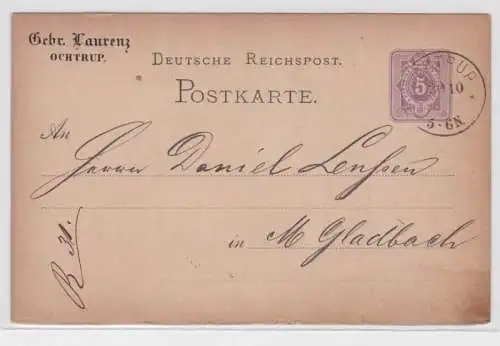 Gebr. Laurenz
OCHTRUP.
DEUTSCHE REICHSPOST.
POSTKARTE.
5
10
5-6N
An
Herrn Daniel Lenssen
in M Gladbach